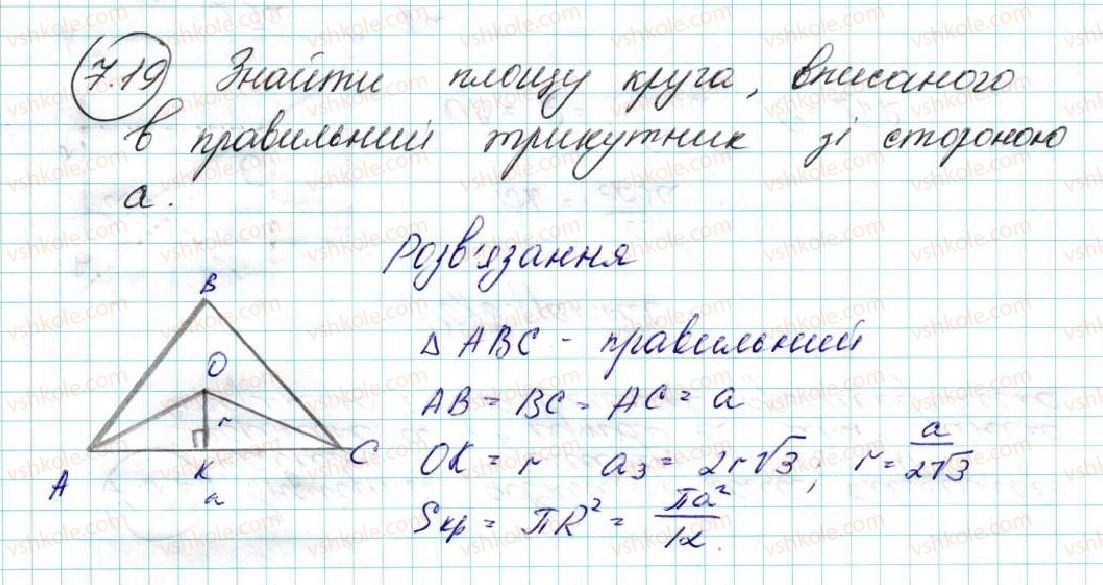 7.19 Знайти площу круга, вписаного
в правильний трикутник зі стороною
а.
Розв'язання
B
O
r
A
K
C
a
△ ABC - правильний
AB = BC = AC = a
OK = r a₃ = 2r√3; r = a/2√3
Sкр = πR² = πa²/12.